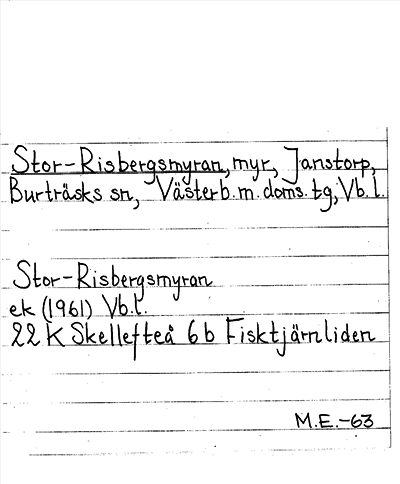 Stor-Risbergsmyran, myr, Janstorp,
Burträsks sn, Västerb. m. doms. tg, Vb. l.
Stor-Risbergsmyran
ek (1961) Vb. l.
22 K Skellefteå 6 b Fisktjärnliden
M.E.-63